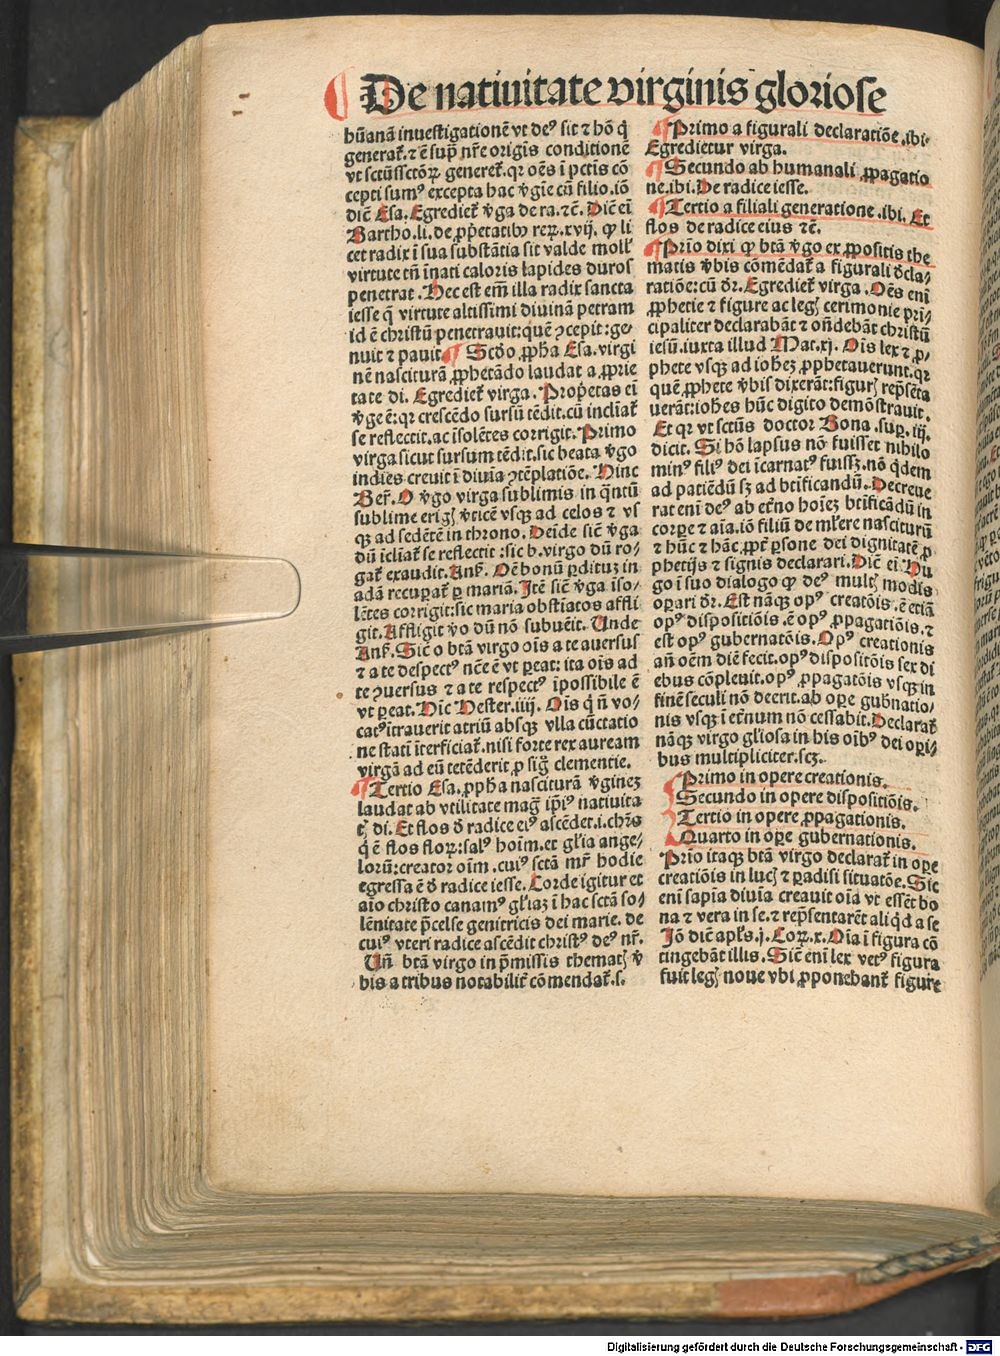 De natiuitate virginis gloriose
hūanā inuestigationē vt deꝰ sit ⁊ hō q̇
generat᷑. ⁊ ē sup̄ nr̄e origīs conditionē
vt sctūssctōꝝ generet᷑. qꝛ oēs ī pctīs cō
cepti sumꝰ excepta hac v̇gīe cū filio. iō
dic̄ Esa. Egrediet᷑ v̇ga de ra. ⁊c̄. Dic̄ ei
Bartho. li. de ꝓpͥetatibꝰ reꝝ. xvij. ꝙ li
cet radix ī sua substātia sit valde moll᷑
virtute tn̄ īnati caloris lapides duros
penetrat. Hec est em̄ illa radix sancta
iesse q̄ virtute altissimi diuinā petram
id ē christū penetrauit: quē ↄcepit: ge-
nuit ⁊ pauit ¶ Scd̄o ꝓph̄a Esa. virgi
nē nasciturā ꝓphetādo laudat a ꝓprie
tate di. Egrediet᷑ virga. Propͥetas ei
v̇ge ē: qꝛ crescēdo sursū tēdit. cū incliat᷑
se reflectit. ac īsolētes corrigit. Primo
virga sicut sursum tēdit. sic beata v̇go
indies creuit ī diuīa ↄtēplatiōe. Hinc
Ber̄. O v̇go virga sublimis in q̄ntū
sublime erigꝭ v̇ticē vsqꝫ ad celos ⁊ vs
qꝫ ad sedētē in throno. Deīde sic̄ v̇ga
dū īcliat᷑ se reflectit: sic b. virgo dū ro-
gat᷑ exaudit. Anẜ. Oē bonū ꝑditūꝫ in
adā recuꝑat᷑ ꝑ mariā. Itē sic̄ v̇ga īso-
lētes corrigit: sic maria obstiatos affli
git. Affligit v̇o dū nō subueīt. Unde
Anẜ. Sic̄ o btā virgo oīs a te auersus
⁊ a te despectꝰ nc̄e ē vt ꝑeat: ita oīs ad
te ↄuersus ⁊ a te respectꝰ īpossibile ē
vt ꝑeat. Hīc Hester. iiij. Oīs q̇ n̄ vo-
catꝰ ītrauerit atriū absqꝫ vlla cūctatio
ne statī īterficiat᷑. nisi forte rex auream
virgā ad eū tetēderit ꝓ sig̊ clementie.
¶ Tertio Esa. ꝓph̄a nasciturā v̇ginez
laudat ab vtilitate mag̊ ip̄iꝰ natiuita
tꝭ di. Et flos d̄ radice eiꝰ ascēdet. i. chr̄s
q̇ ē flos floꝝ: salꝰ hoīm. et gl̄ia ange-
lorū: creator oīm. cuiꝰ sctā mr̄ hodie
egressa ē d̄ radice iesse. Corde igitur et
aīo christo canamꝰ gl̄iaz ī hac sctā so-
lēnitate p̄celse genitricis dei marie. de
cuiꝰ vteri radice ascēdit christꝰ deꝰ nr̄.
Un̄ btā virgo in p̄missis thematꝭ v̇
bis a tribus notabilit᷑ cōmendat᷑. ẜ.
¶ Primo a figurali declaratiōe. ibi-
Egredietur virga.
¶ Secundo ab humanali ꝓpagatio
ne. ibi. De radice iesse.
¶ Tertio a filiali generatione. ibi. Et
flos de radice eius ⁊c̄.
¶ Prīo dixi ꝙ btā v̇go ex ꝓpositis the
matis v̇bis cōmēdat᷑ a figurali d̄cla-
ratiōe: cū dr̄. Egrediet᷑ virga. Oēs enī
ꝓphetie ⁊ figure ac legꝭ cerimonie pri-
cipaliter declarabāt ⁊ oñdebāt christū
iesū. iuxta illud Mat. xj. Oīs lex ⁊ ꝓ-
phete vsqꝫ ad iohez ꝓphetauerunt. qꝛ
quē ꝓphete v̇bis dixerāt: figurꝭ rep̄sēta
uerāt: iohēs hūc digito demōstrauit.
Et qꝛ vt sctūs doctor Bona. suꝑ. iij.
dicit. Si hō lapsus nō fuisset nihilo
minꝰ filiꝰ dei īcarnatꝰ fuissꝫ. nō q̇dem
ad patiēdū sꝫ ad btīficandū. Decreue
rat enī deꝰ ab et̄no hoīez btīficādū in
corꝑe ⁊ aīa. iō filiū de mr̄e nasciturū
⁊ hūc ⁊ hāc ꝓpt̄ ꝑsone dei dignitatē ꝓ
phetijs ⁊ signis declarari. Dic̄ ei Hu
go ī suo dialogo ꝙ deꝰ multꝭ modis
oꝑari dr̄. Est nāqꝫ opꝰ creatōis. ē etiā
opꝰ dispositiōis. ē opꝰ ꝓpagatiōis. ⁊
est opꝰ gubernatōis. Opꝰ creationis
an̄ oēm diē fecit. opꝰ dispositōis sex di
ebus cōpleuit. opꝰ ꝓpagatōis vsqꝫ in
finē seculi nō deerit. ab oꝑe gub̄natio-
nis vsqꝫ ī et̄num nō cessabit. Declarat᷑
nāqꝫ virgo gl̄iosa in his oībꝰ dei oꝑi-
bus multipliciter. scꝫ.
Primo in opere creationis.
Secundo in opere dispositiōis.
Tertio in opere ꝓpagationis.
Quarto in oꝑe gubernationis.
Prīo itaqꝫ btā virgo declarat᷑ in oꝑe
creatiōis in lucꝭ ⁊ ꝑadisi situatōe. Sic
enī sapīa diuīa creauit oīa vt essēt bo
na ⁊ vera in se. ⁊ rep̄sentarēt aliq̇d a se
Iō dic̄ apl̄s. j. Coꝝ. x. Oīa ī figura cō
tingebāt illis. Sic̄ enī lex vetꝰ figura
fuit legꝭ noue vbi ꝓponebant᷑ figure
Digitalisierung gefördert durch die Deutsche Forschungsgemeinschaft - DFG